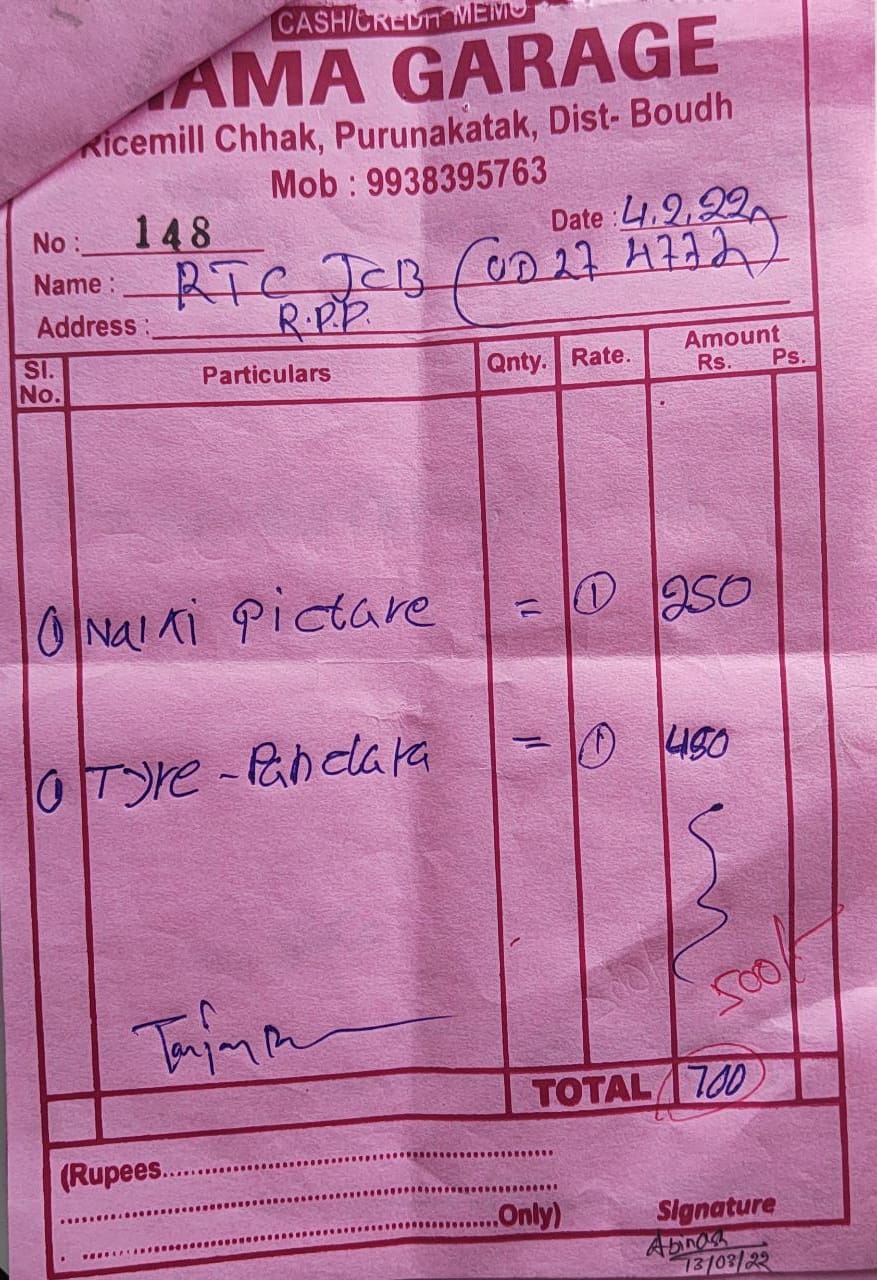 CASH/CREDIT MEMO
AMA GARAGE
Ricemill Chhak, Purunakatak, Dist- Boudh
Mob : 9938395763
No : 148
Date : 4.2.22
Name : RTC JCB (OD 27 4772)
Address : R.P.P.
Sl. No. Particulars Qnty. Rate. Amount Rs. Ps.
Nalki Pictare = 1 250
Tyre - = 1 450
500/-
TOTAL 700
(Rupees
Only)
Signature
Abinash
13/03/22